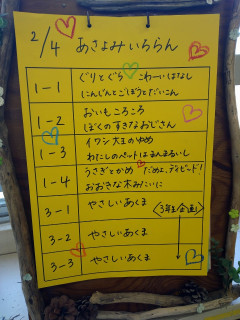 2/4 あさよみ いちらん
1-1 ぐりとぐら こわーいはなし
にんじんとごぼうとだいこん
1-2 おいもころころ
ぼくのすきなおじさん
1-3 イワシ大王のゆめ
わたしのペットはまんまるいし
1-4 うさぎとかめ だめよ、デイビッド!
おおきな木みたいに
3-1 やさしいあくま
<3年生企画>
3-2 やさしいあくま
3-3 やさしいあくま